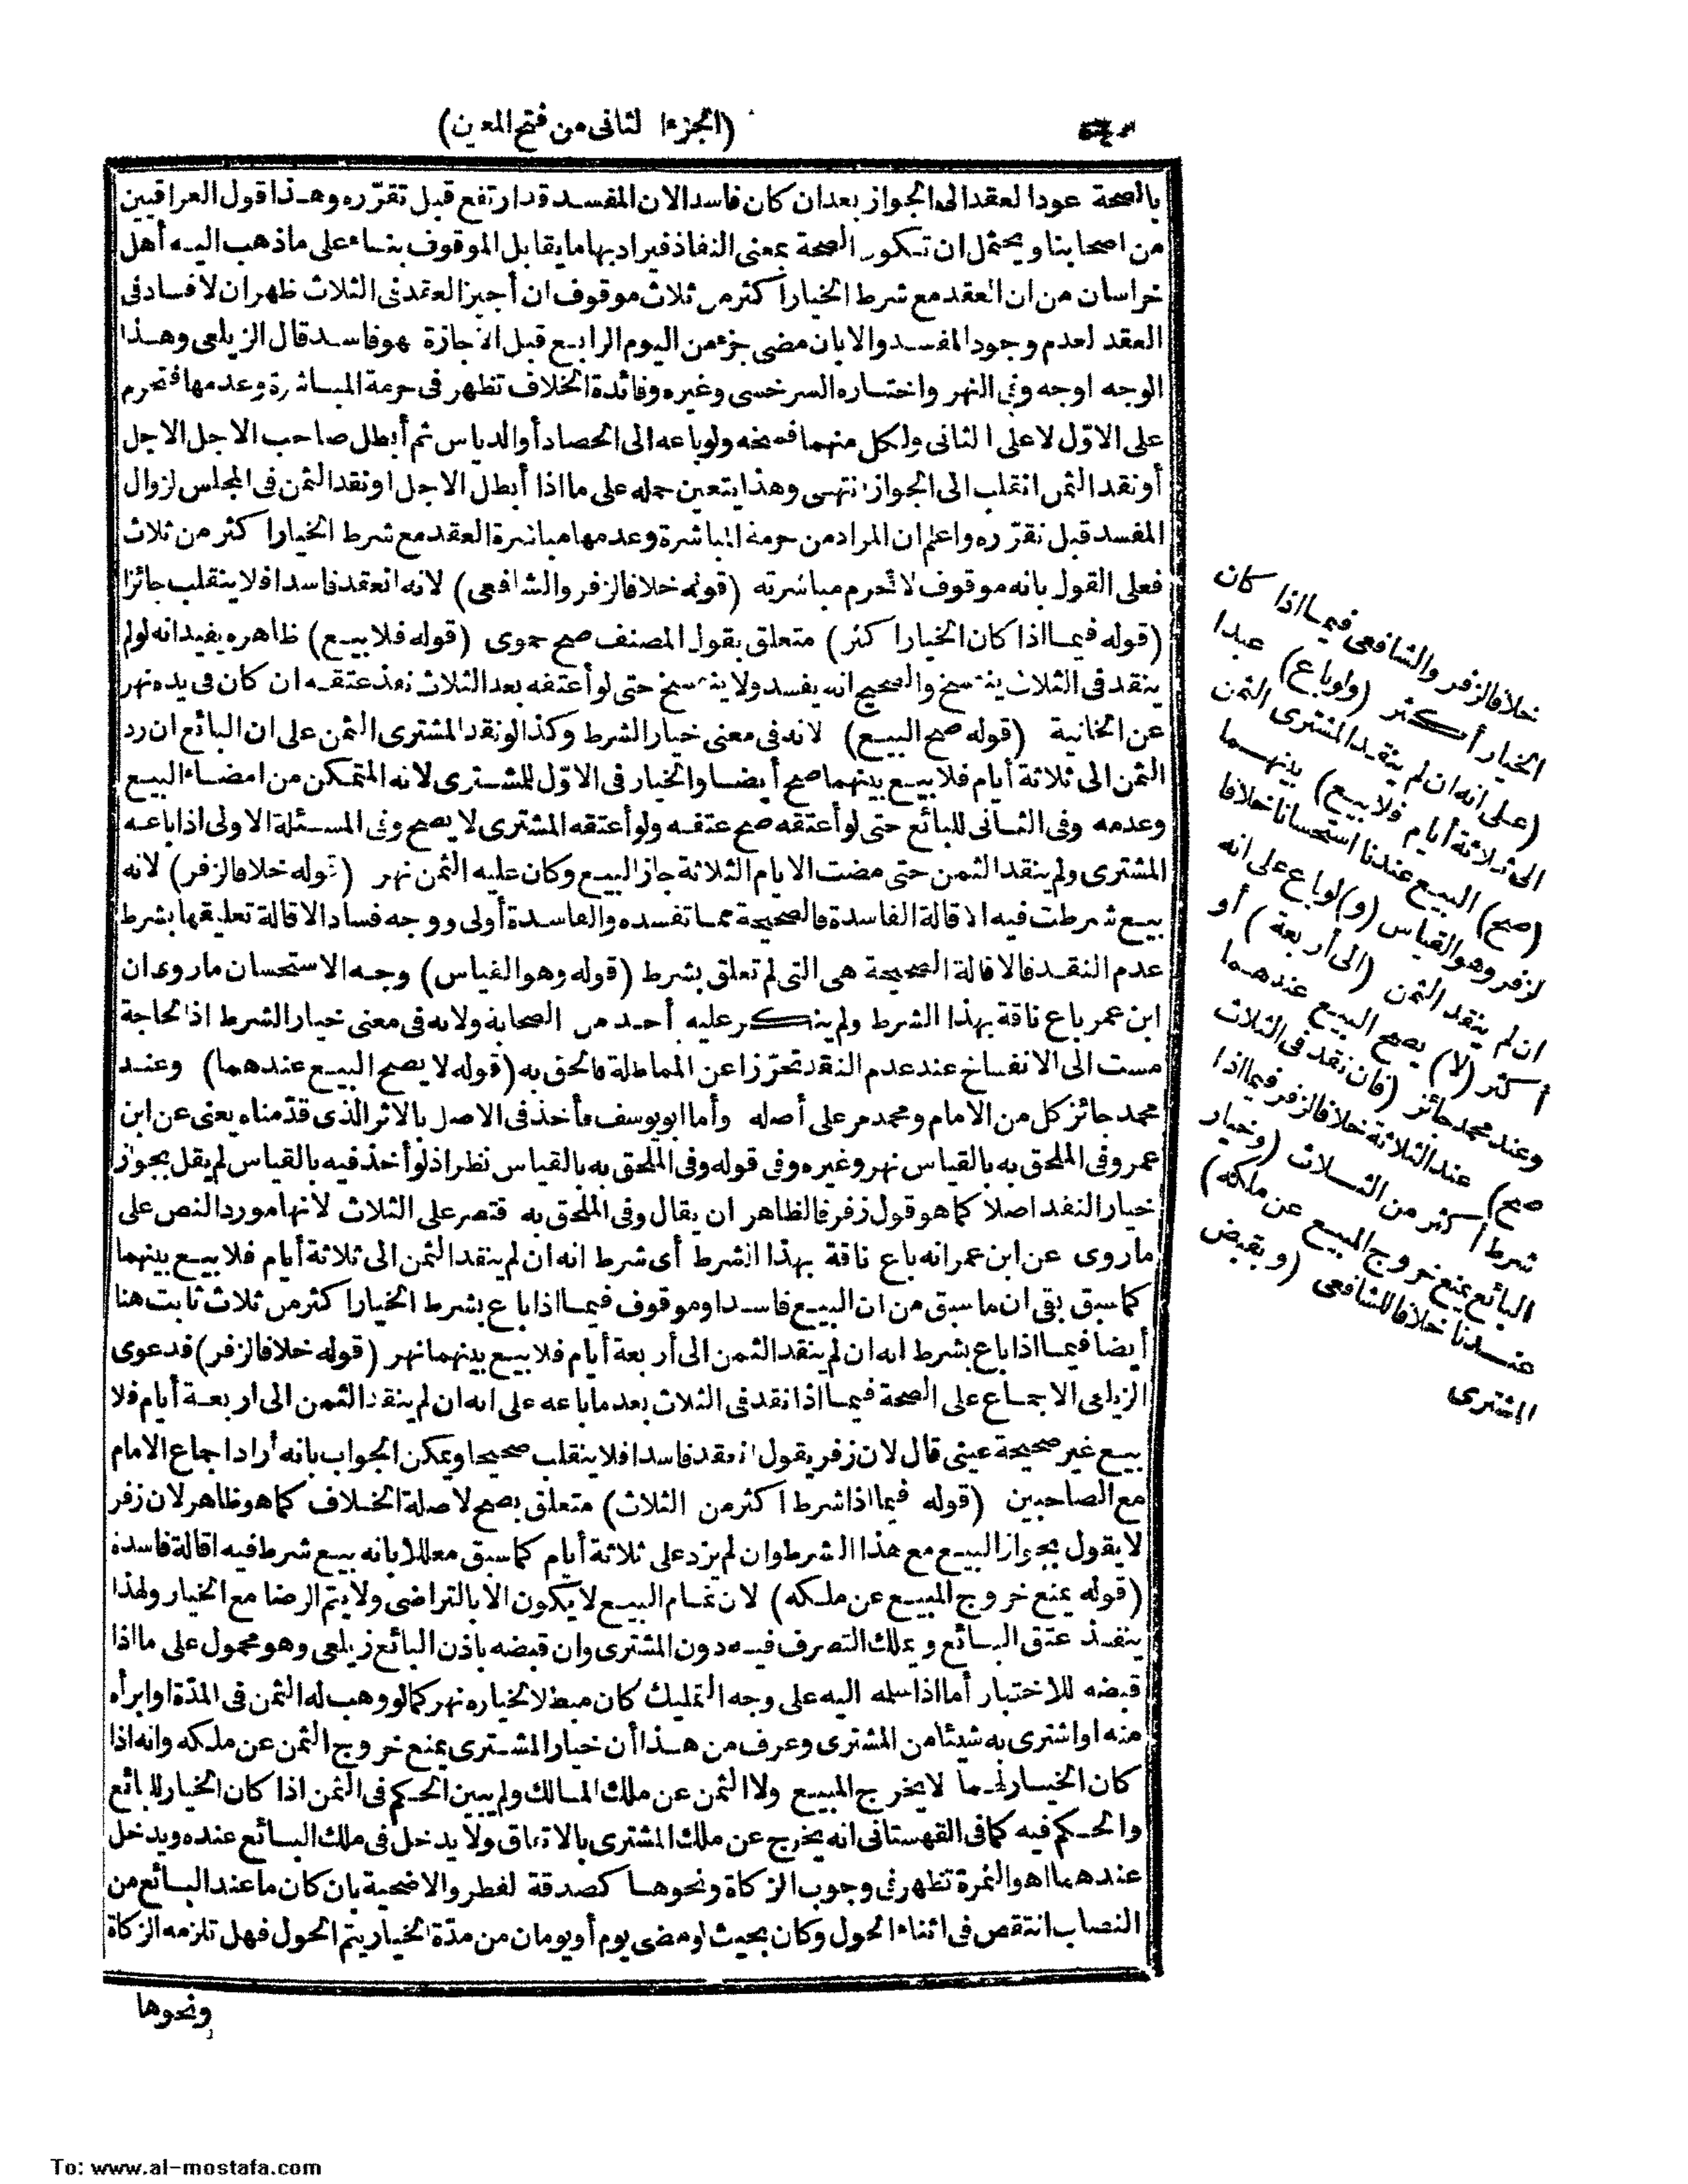 (الجزء الثانى من فتح المعين)
بالصحة عود العقد الى الجواز بعد ان كان فاسدا لان المفسد قد ارتفع قبل تقرّره وهذا قول العراقيين
من اصحابنا ويحتمل ان تكون الصحة بمعنى النفاذ فيراد بها ما يقابل الموقوف بناء على ما ذهب اليه أهل
خراسان من ان العقد مع شرط الخيار أكثر من ثلاث موقوف ان أجيز العقد فى الثلاث ظهر ان لا فساد فى
العقد لعدم وجود المفسد والا بان مضى جزء من اليوم الرابع قبل الاجازة فهو فاسد قال الزيلعى وهذا
الوجه اوجه وفى النهر واختاره السرخسى وغيره وفائدة الخلاف تظهر فى حرمة المباشرة وعدمها فتحرم
على الاوّل لا على الثانى ولكل منهما فسخه ولو باعه الى الحصاد أو الدياس ثم أبطل صاحب الاجل الاجل
أو نقد الثمن انقلب الى الجواز انتهى وهذا يتعين حمله على ما اذا أبطل الاجل او نقد الثمن فى المجلس لزوال
المفسد قبل تقرّره واعلم ان المراد من حرمة المباشرة وعدمها مباشرة العقد مع شرط الخيار اكثر من ثلاث
فعلى القول بانه موقوف لا تحرم مباشرته (قوله خلافا لزفر والشافعى) لانه انعقد فاسدا فلا ينقلب جائزا
(قوله فيما اذا كان الخيار اكثر) متعلق بقول المصنف صح حموى (قوله فلا بيع) ظاهره يفيد انه لو لم
ينقد فى الثلاث ينفسخ والصحيح انه يفسد ولا ينفسخ حتى لو أعتقه بعد الثلاث نفذ عتقه ان كان فى يده نهر
عن الخانية (قوله صح البيع) لانه فى معنى خيار الشرط وكذا لو نقد المشترى الثمن على ان البائع ان رد
الثمن الى ثلاثة أيام فلا بيع بينهما صح أيضا والخيار فى الاوّل للمشترى لانه المتمكن من امضاء البيع
وعدمه وفى الثانى للبائع حتى لو أعتقه صح عتقه ولو أعتقه المشترى لا يصح وفى المسئلة الاولى اذا باعه
المشترى ولم ينقد الثمن حتى مضت الايام الثلاثة جاز البيع وكان عليه الثمن نهر (قوله خلافا لزفر) لانه
بيع شرطت فيه الاقالة الفاسدة فالصحيحة مما تفسده والفاسدة أولى ووجه فساد الاقالة تعليقها بشرط
عدم النقد فالاقالة الصحيحة هى التى لم تعلق بشرط (قوله وهو القياس) وجه الاستحسان ما روى ان
ابن عمر باع ناقة بهذا الشرط ولم ينكر عليه أحد من الصحابة ولانه فى معنى خيار الشرط اذ الحاجة
مست الى الانفساخ عند عدم النقد تحرّزا عن المماطلة فالحق به (قوله لا يصح البيع عندهما) وعند
محمد جائز كل من الامام ومحمد مر على أصله وأما ابو يوسف فأخذ فى الاصل بالاثر الذى قدّمناه يعنى عن ابن
عمر وفى الملحق به بالقياس نهر وغيره وفى قوله وفى الملحق به بالقياس نظر اذ لو أخذ فيه بالقياس لم يقل بجواز
خيار النقد اصلا كما هو قول زفر فالظاهر ان يقال وفى الملحق به قتصر على الثلاث لانها مورد النص على
ما روى عن ابن عمر انه باع ناقة بهذا الشرط أى شرط انه ان لم ينقد الثمن الى ثلاثة أيام فلا بيع بينهما
كما سبق بقى ان ما سبق من ان البيع فاسد او موقوف فيما اذا باع بشرط الخيار اكثر من ثلاث ثابت هنا
أيضا فيما اذا باع بشرط انه ان لم ينقد الثمن الى أربعة أيام فلا بيع بينهما نهر (قوله خلافا لزفر) فدعوى
الزيلعى الاجماع على الصحة فيما اذا نقد فى الثلاث بعد ما باعه على انه ان لم ينقد الثمن الى اربعة أيام فلا
بيع غير صحيحة عينى قال لان زفر يقول انعقد فاسدا فلا ينقلب صحيحا ويمكن الجواب بانه أراد اجماع الامام
مع الصاحبين (قوله فيما اذا شرط اكثر من الثلاث) متعلق بصح لا صلة الخلاف كما هو ظاهر لان زفر
لا يقول بجواز البيع مع هذا الشرط وان لم يزد على ثلاثة أيام كما سبق معللا بانه بيع شرط فيه اقالة فاسدة
(قوله يمنع خروج المبيع عن ملكه) لان تمام البيع لا يكون الا بالتراضى ولا يتم الرضا مع الخيار ولهذا
ينفذ عتق البائع ويملك التصرف فيه دون المشترى وان قبضه باذن البائع زيلعى وهو محمول على ما اذا
قبضه للاختبار أما اذا سله اليه على وجه التمليك كان مبطلا لخياره نهر كما لو وهب له الثمن فى المدّة او ابرأه
منه او اشترى به شيئا من المشترى وعرف من هذا أن خيار المشترى يمنع خروج الثمن عن ملكه وانه اذا
كان الخيار لهما لا يخرج المبيع ولا الثمن عن ملك المالك ولم يبين الحكم فى الثمن اذا كان الخيار للبائع
والحكم فيه كما فى القهستانى انه يخرج عن ملك المشترى بالاتفاق ولا يدخل فى ملك البائع عنده ويدخل
عندهما اهـ والثمرة تظهر فى وجوب الزكاة ونحوها كصدقة لفطر والاضحية بان كان ما عند البائع من
النصاب انتقص فى اثناء الحول وكان بحيث لو مضى يوم أو يومان من مدّة الخيار يتم الحول فهل تلزمه الزكاة
ونحوها
خلافا لزفر والشافعى فيما اذا كان
الخيار أكثر (ولو باع) عبدا
(على انه ان لم ينقد المشترى الثمن
الى ثلاثة أيام فلا بيع) بينهما
(صح) البيع عندنا استحسانا خلافا
لزفر وهو القياس (و) لو باع على انه
ان لم ينقد الثمن (الى أربعة) أو
أكثر (لا) يصح البيع عندهما
وعند محمد جائز (فان نقد فى الثلاث
صح) عند الثلاثة خلافا لزفر فيما اذا
شرط أكثر من الثلاث (وخيار
البائع يمنع خروج المبيع عن ملكه)
عندنا خلافا للشافعى (وبقبض
المشترى
To: www.al-mostafa.com